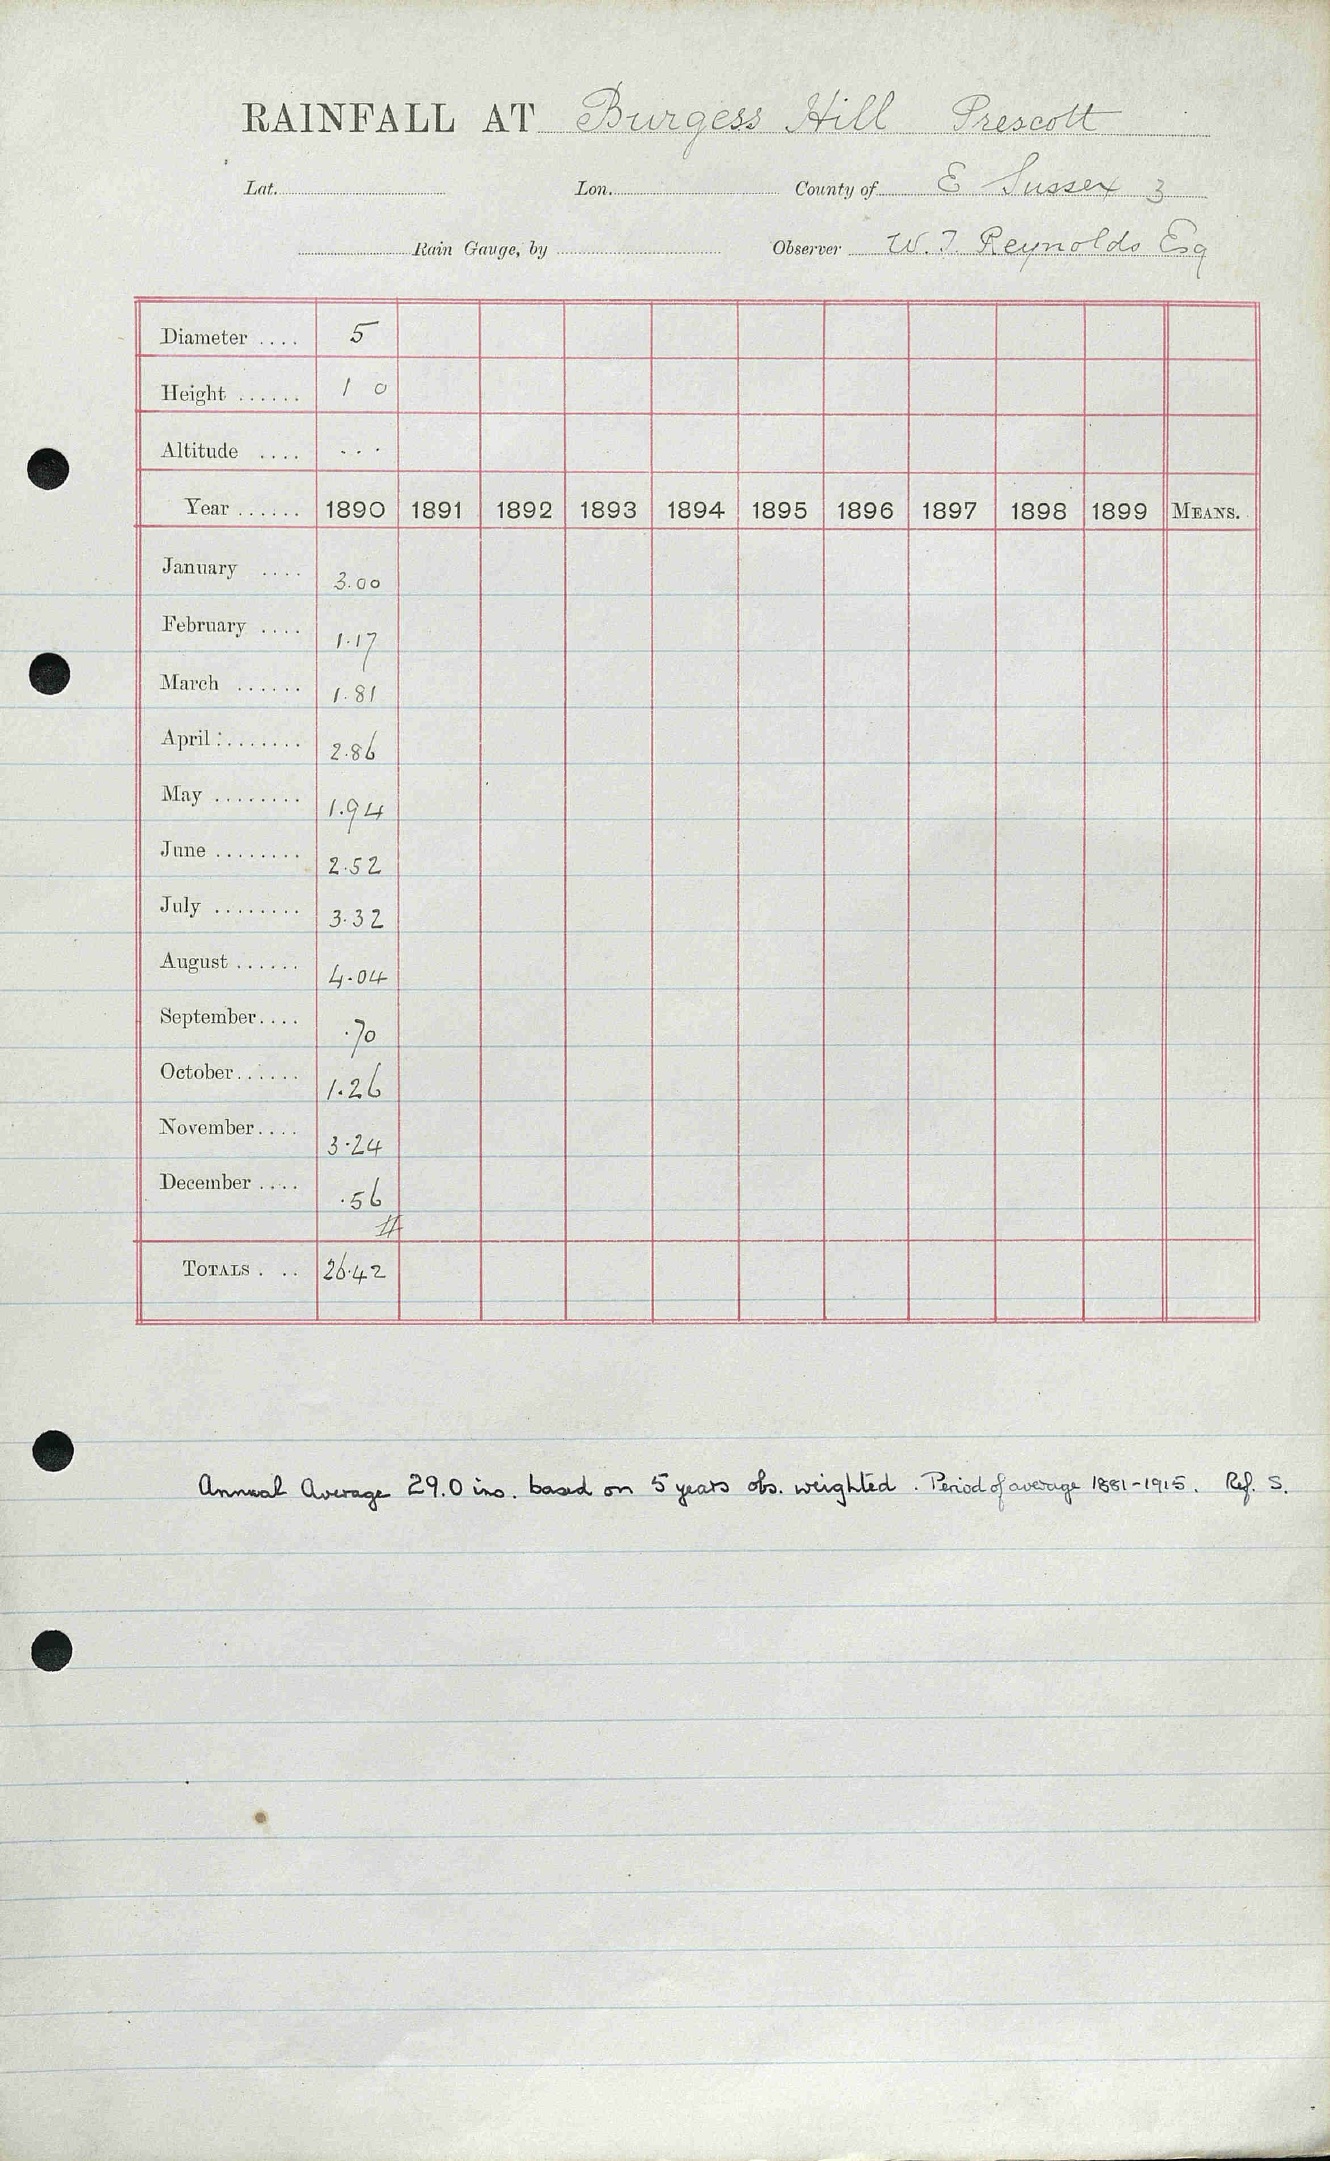 RAINFALL AT Burgess Hill Prescott
Lat. Lon. County of E Sussex 3
Rain Gauge, by Observer W. J. Reynolds Esq
Diameter .... 5
Height ...... 1 0
Altitude .... ...
Year ...... 1890 1891 1892 1893 1894 1895 1896 1897 1898 1899 MEANS.
January .... 3.00
February .... 1.17
March ...... 1.81
April ........ 2.86
May ........ 1.94
June ........ 2.52
July ........ 3.32
August ...... 4.04
September.... .70
October...... 1.26
November.... 3.24
December .... .56
#
TOTALS . .. 26.42
Annual Average 29.0 ins. based on 5 years obs. weighted. Period of average 1881-1915. Ref. S.